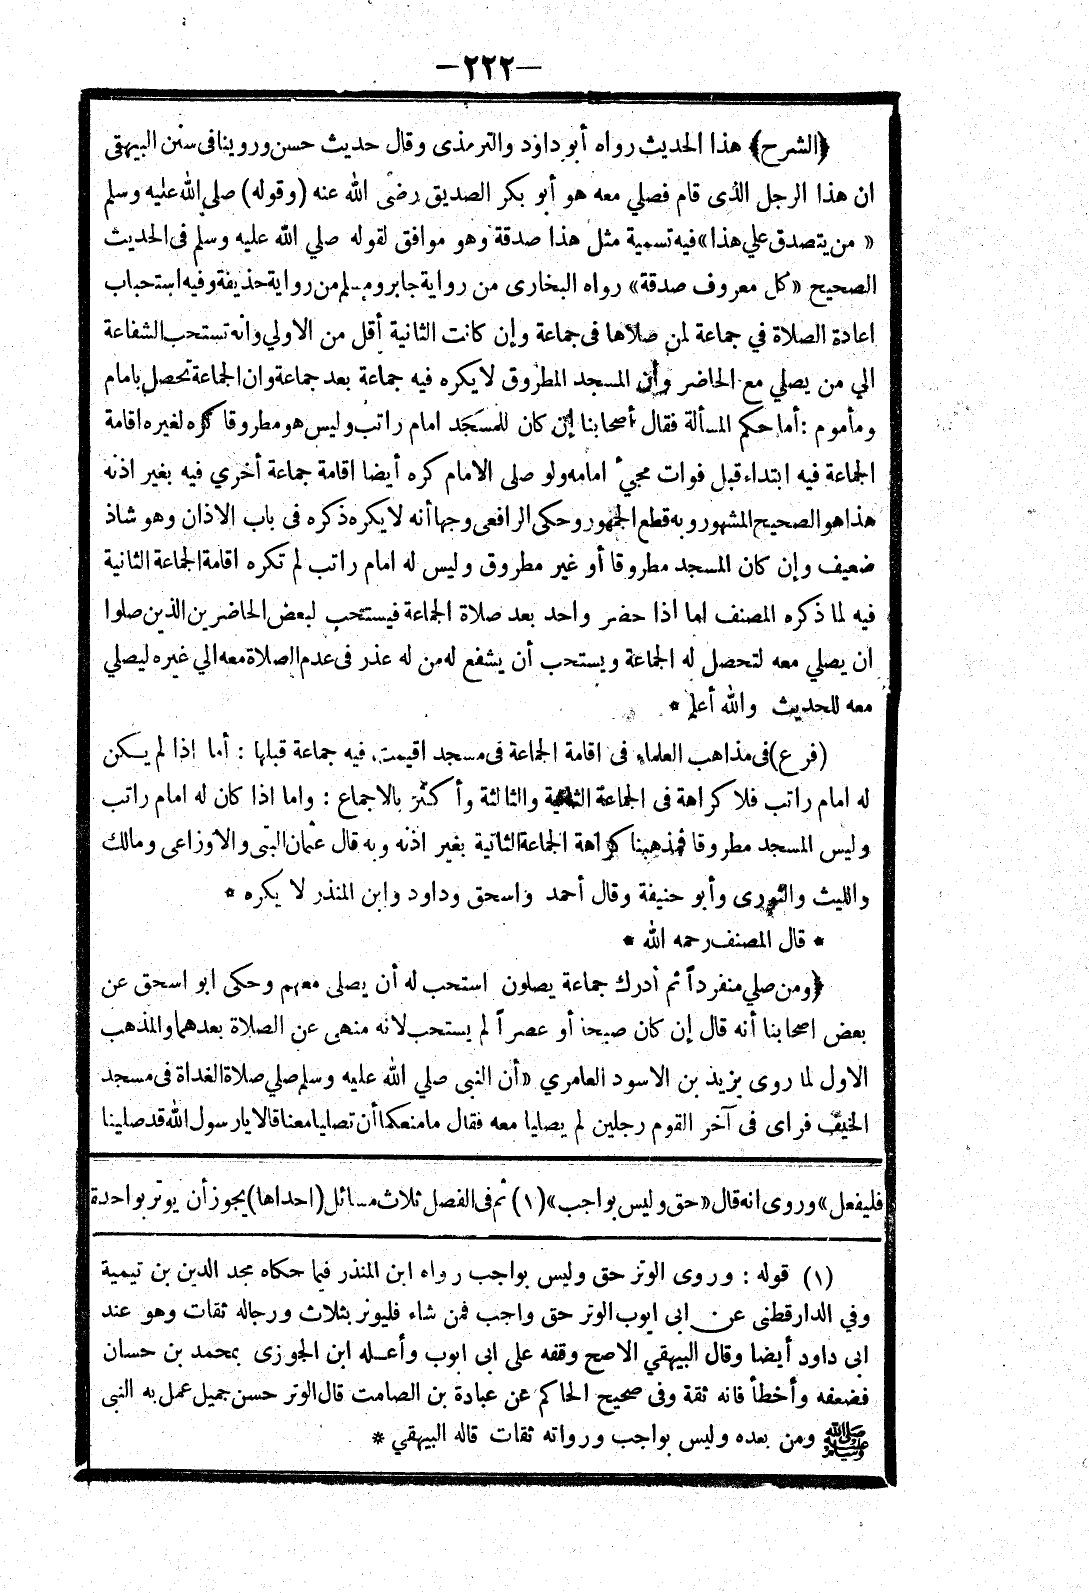 —٢٢٢—
﴿الشرح﴾ هذا الحديث رواه أبو داؤد والترمذى وقال حديث حسن وروينا فى سنن البيهقى
ان هذا الرجل الذى قام فصلي معه هو أبو بكر الصديق رضى الله عنه (وقوله) صلى الله عليه وسلم
« من يتصدق علي هذا» فيه تسمية مثل هذا صدقة وهو موافق لقوله صلي الله عليه وسلم فى الحديث
الصحيح «كل معروف صدقة» رواه البخارى من رواية جابر ومسلم من رواية حذيفة وفيه استحباب
اعادة الصلاة في جماعة لمن صلاها فى جماعة وإن كانت الثانية أقل من الاولي وانه تستحب الشفاعة
الي من يصلي مع الحاضر وأن المسجد المطروق لا يكره فيه جماعة بعد جماعة وان الجماعة تحصل بامام
ومأموم : أما حكم المسألة فقال أصحابنا إن كان للمسجد امام راتب وليس هو مطروقا كره لغيره اقامة
الجماعة فيه ابتداء قبل فوات مجيء امامه ولو صلى الامام كره أيضا اقامة جماعة أخري فيه بغير اذنه
هذا هو الصحيح المشهور وبه قطع الجمهور وحكى الرافعى وجها أنه لا يكره ذكره فى باب الاذان وهو شاذ
ضعيف وإن كان المسجد مطروقا أو غير مطروق وليس له امام راتب لم تكره اقامة الجماعة الثانية
فيه لما ذكره المصنف اما اذا حضر واحد بعد صلاة الجماعة فيستحب لبعض الحاضرين الذين صلوا
ان يصلي معه لتحصل له الجماعة ويستحب أن يشفع له من له عذر فى عدم الصلاة معه الي غيره ليصلي
معه للحديث والله أعلم *
(فرع) فى مذاهب العلماء فى اقامة الجماعة فى مسجد اقيمت فيه جماعة قبلها : أما اذا لم يكن
له امام راتب فلا كراهة فى الجماعة الثانية والثالثة وأكثر بالاجماع : واما اذا كان له امام راتب
وليس المسجد مطروقا فمذهبنا كراهة الجماعة الثانية بغير اذنه وبه قال عثمان البتى والاوزاعى ومالك
والليث والثورى وأبو حنيفة وقال أحمد واسحق وداود وابن المنذر لا يكره *
* قال المصنف رحمه الله *
﴿ومن صلي منفرداً ثم أدرك جماعة يصلون استحب له أن يصلى معهم وحكى ابو اسحق عن
بعض اصحابنا أنه قال إن كان صبحا أو عصراً لم يستحب لانه منهى عن الصلاة بعدهما والمذهب
الاول لما روى يزيد بن الاسود العامري «أن النبى صلي الله عليه وسلم صلي صلاة الغداة فى مسجد
الخيف فراى فى آخر القوم رجلين لم يصليا معه فقال ما منعكما أن تصليا معنا قالا يارسول الله قد صلينا
فليفعل» وروى انه قال «حق وليس بواجب» (١) ثم فى الفصل ثلاث مسائل (احداها) يجوز أن يوتر بواحدة
(١) قوله : وروى الوتر حق وليس بواجب رواه ابن المنذر فيما حكاه مجد الدين بن تيمية
وفي الدارقطنى عن ابى ايوب الوتر حق واجب فمن شاء فليوتر بثلاث ورجاله ثقات وهو عند
ابى داود أيضا وقال البيهقي الاصح وقفه على ابى ايوب وأعله ابن الجوزى بمحمد بن حسان
فضعفه وأخطأ فانه ثقة وفى صحيح الحاكم عن عبادة بن الصامت قال الوتر حسن جميل عمل به النبى
ﷺ ومن بعده وليس بواجب ورواته ثقات قاله البيهقي *